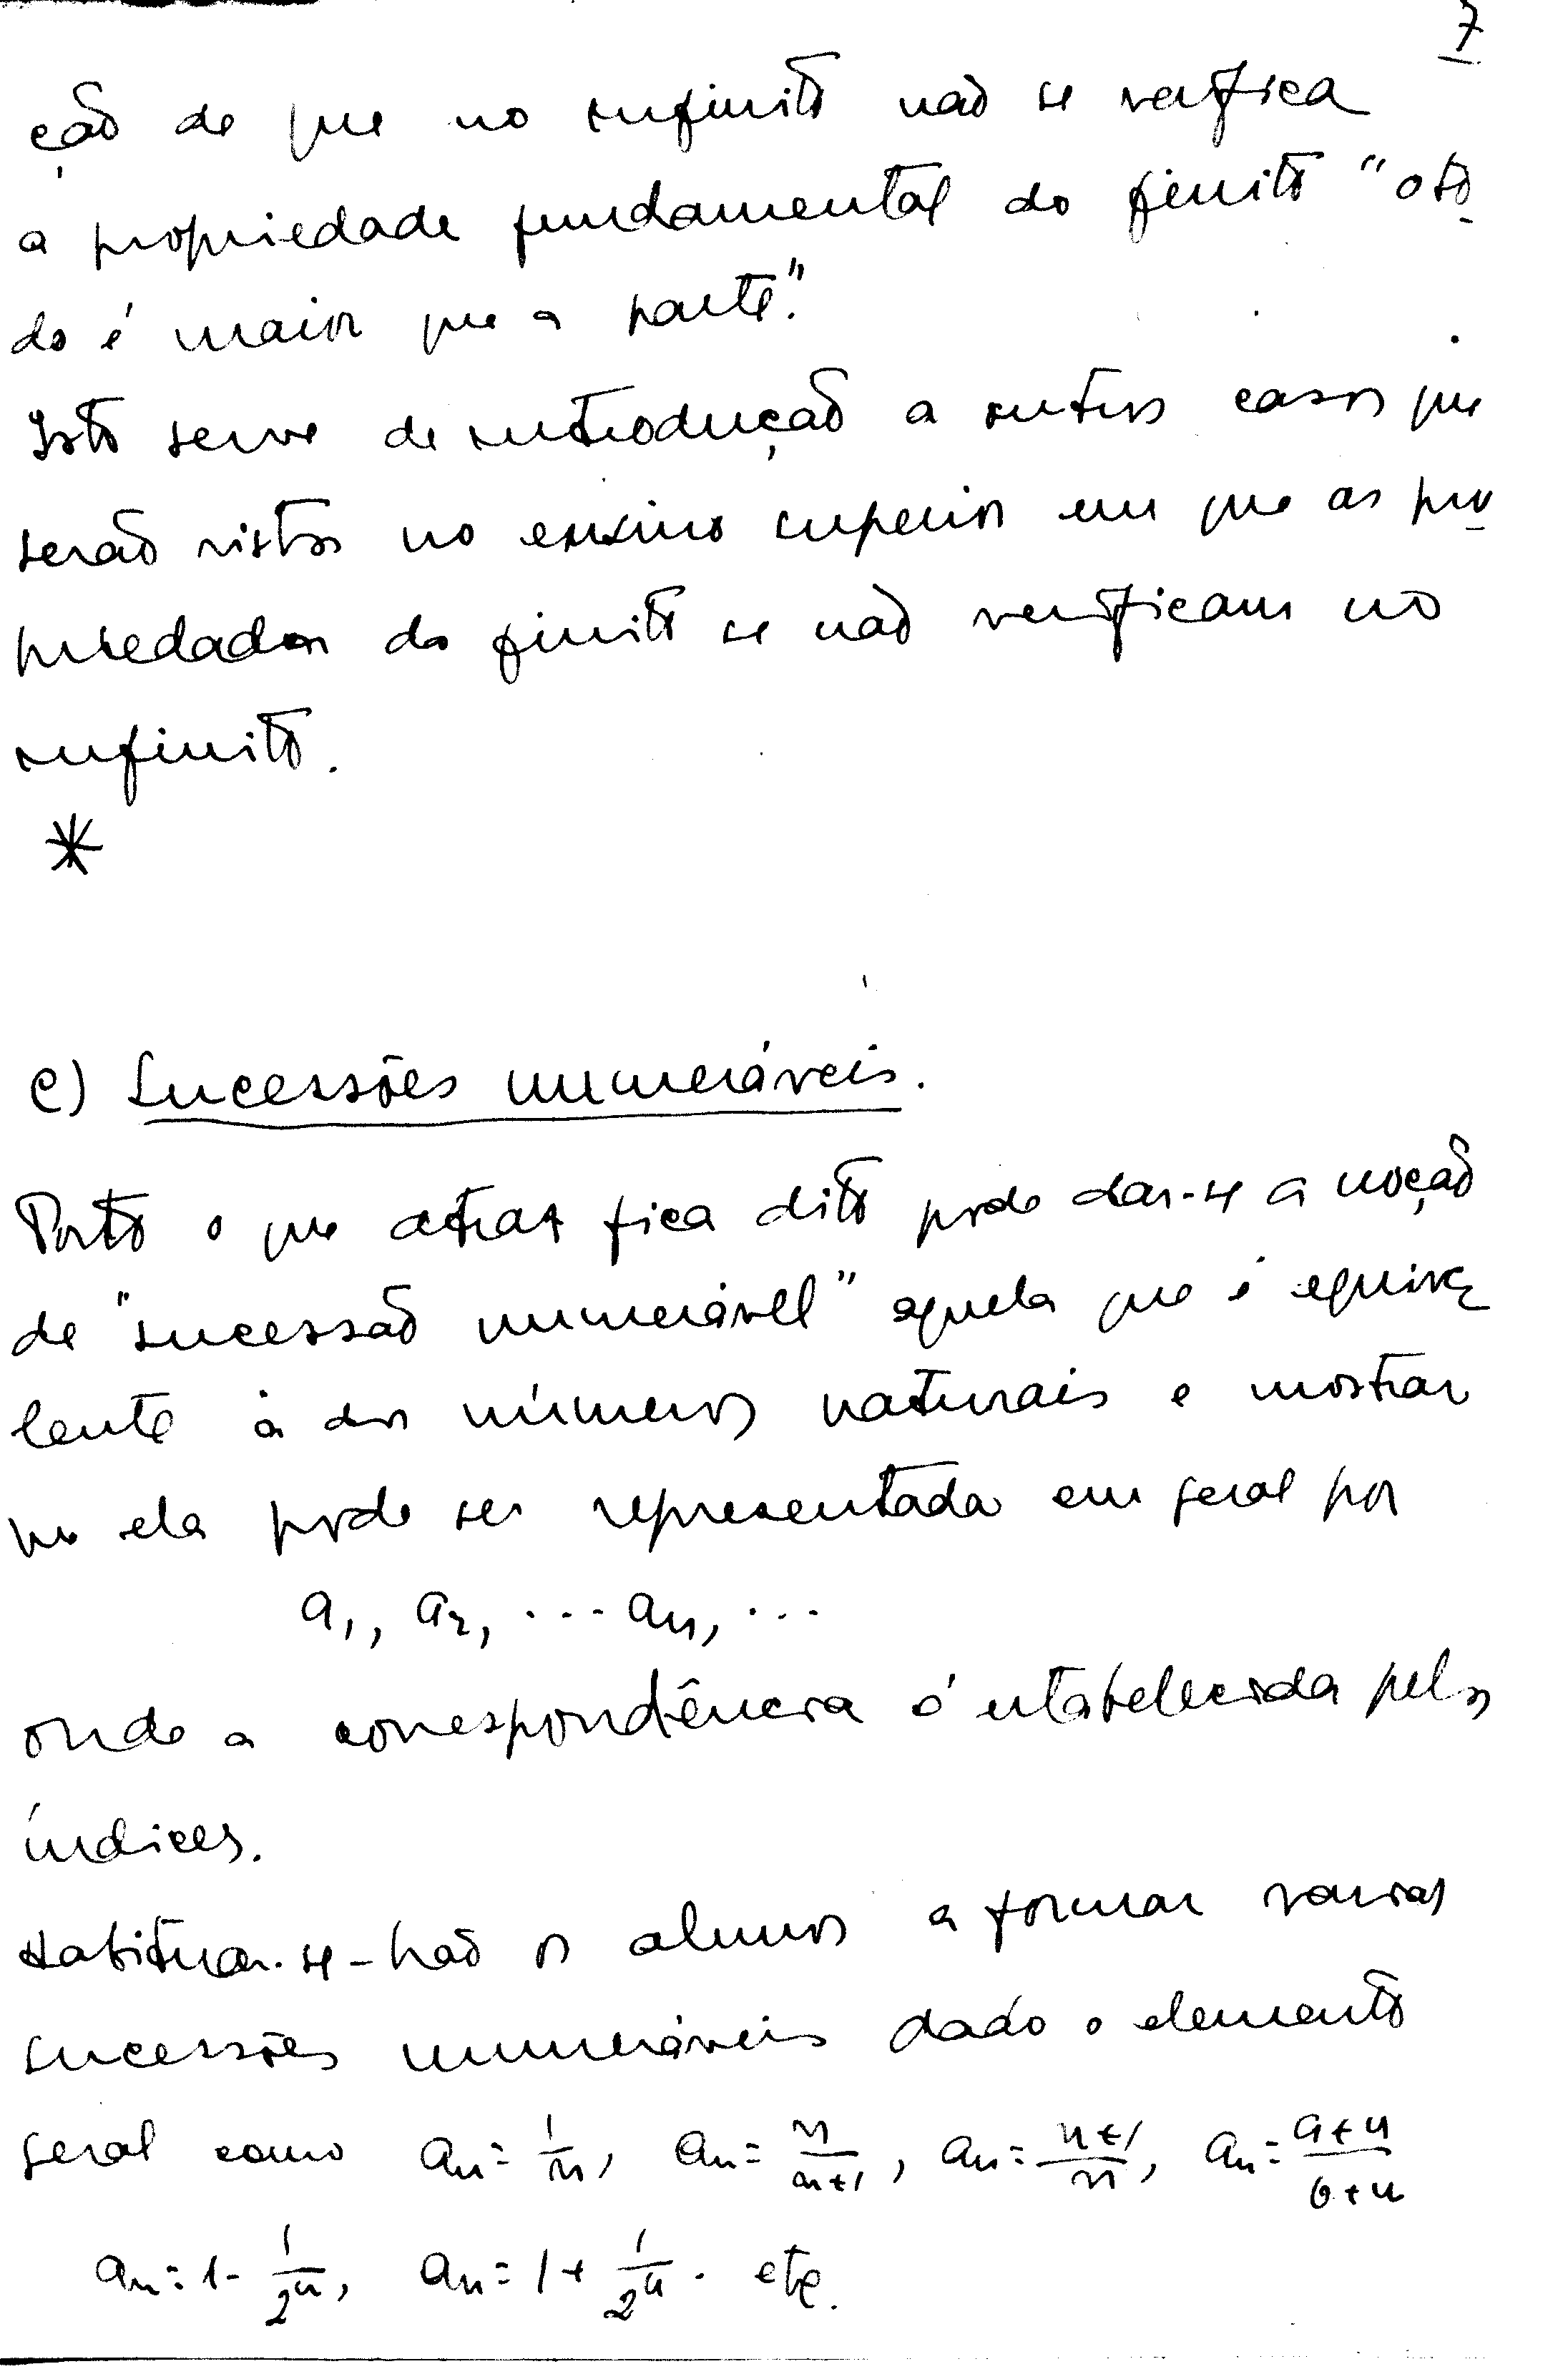 7
ção de que no infinito não se verifica
a propriedade fundamental do finito "o to
do é maior que a parte".
Isto serve de introdução a outros casos que
serão vistos no ensino superior em que as pro
priedades do finito se não verificam no
infinito.
*
c) Sucessões numeráveis.
Posto o que atras fica dito pode dar-se a noção
de "sucessão numerável" aquela que é equiva
lente à dos números naturais e mostrar
que ela pode ser representada em geral por
a₁, a₂, ... aₙ, ...
onde a correspondência é estabelecida pelos
índices.
Habituar-se-hão os alunos a formar varias
sucessões numeráveis dado o elemento
geral como aₙ = 1/n, aₙ = n/n+1, aₙ = n+1/n, aₙ = a+n/b+n
aₙ = 1 - 1/2ⁿ, aₙ = 1 + 1/2ⁿ. etc.